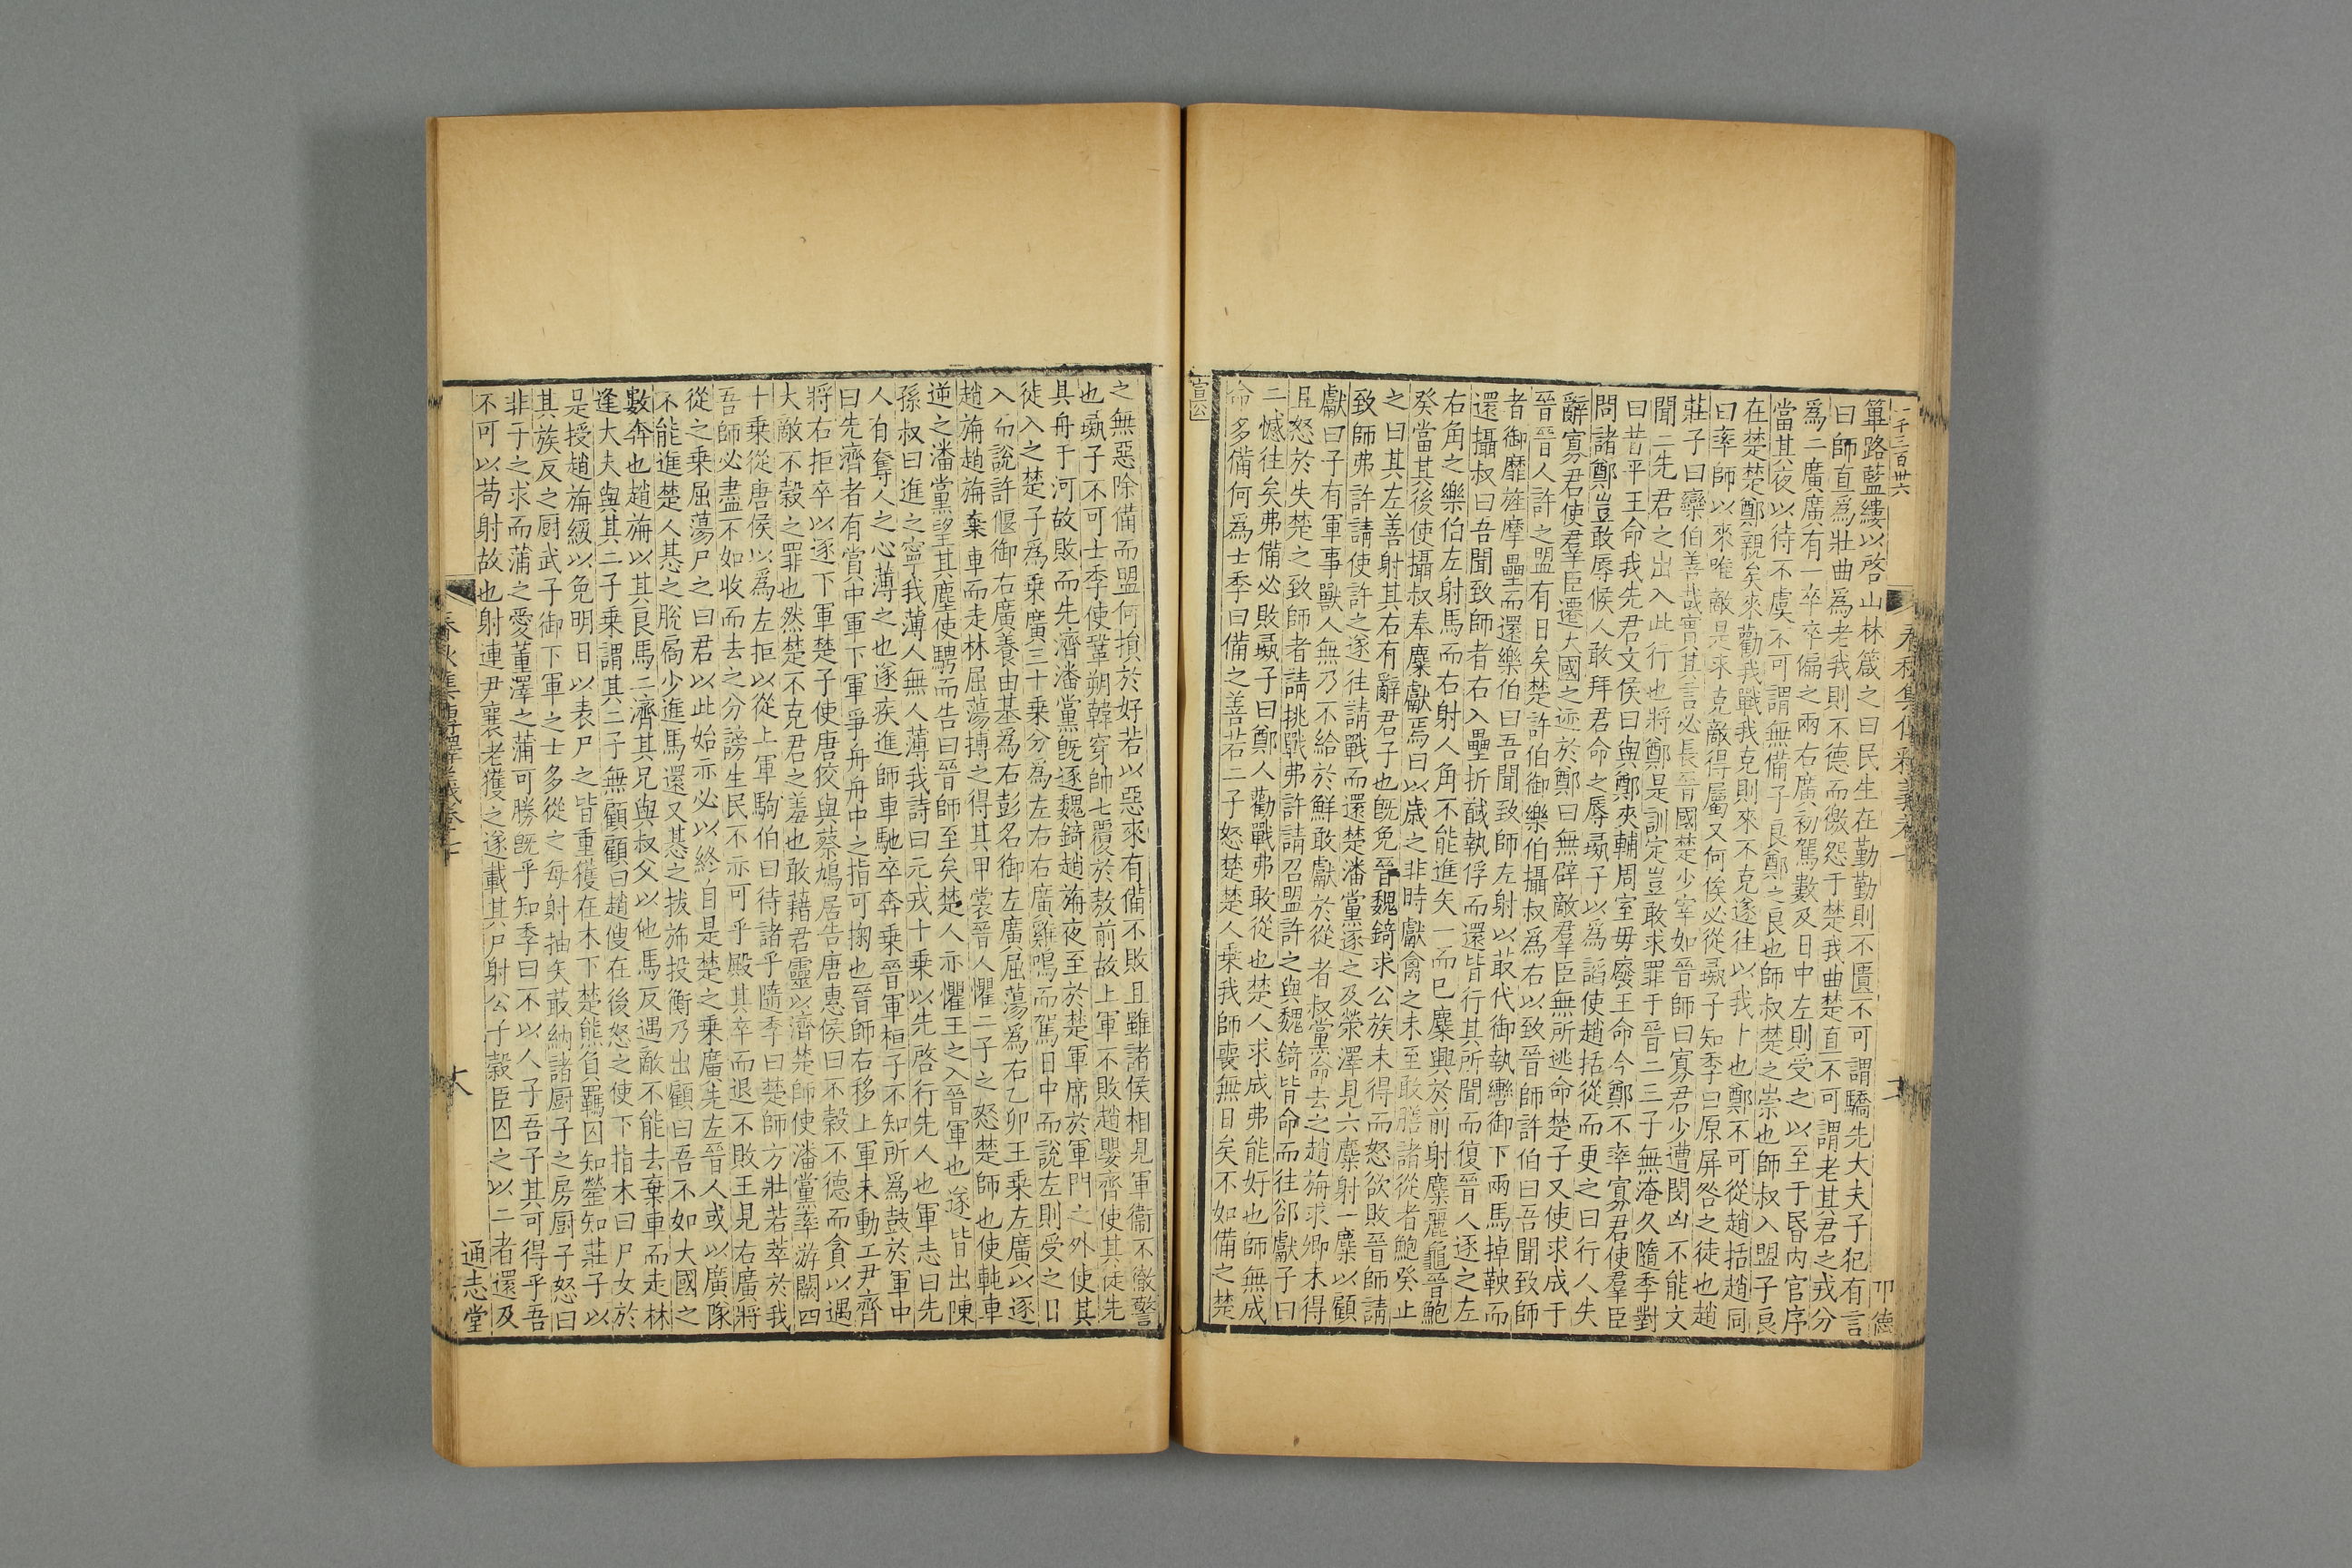 二千三百卅六
篳路藍縷以啓山林箴之曰民生在勤勤則不匱不可謂驕先大夫子犯有言
曰師直爲壯曲爲老我則不德而徼怨于楚我曲楚直不可謂老其君之戎分
爲二廣廣有一卒卒偏之兩右廣初駕數及日中左則受之以至于昏内官序
當其夜以待不虞不可謂無備子良鄭之良也師叔楚之崇也師叔入盟子良
在楚楚鄭親矣來勸我戰我克則來不克遂往以我卜也鄭不可從趙括趙同
曰率師以來唯敵是求克敵得屬又何俟必從彘子知季曰原屏咎之徒也趙
莊子曰欒伯善哉實其言必長晉國楚少宰如晉師曰寡君少遭閔凶不能文
聞二先君之出入此行也將鄭是訓定豈敢求罪于晉二三子無淹久隨季對
曰昔平王命我先君文侯曰與鄭夾輔周室毋廢王命今鄭不率寡君使羣臣
問諸鄭豈敢辱候人敢拜君命之辱彘子以爲諂使趙括從而更之曰行人失
辭寡君使羣臣遷大國之迹於鄭曰無辟敵羣臣無所逃命楚子又使求成于
晉晉人許之盟有日矣楚許伯御樂伯攝叔爲右以致晉師許伯曰吾聞致師
者御靡旌摩壘而還樂伯曰吾聞致師左射以菆代御執轡御下兩馬掉鞅而
還攝叔曰吾聞致師者右入壘折馘執俘而還皆行其所聞而復晉人逐之左
右角之樂伯左射馬而右射人角不能進矢一而已麋興於前射麋麗龜晉鮑
癸當其後使攝叔奉麋獻焉曰以歲之非時獻禽之未至敢膳諸從者鮑癸止
之曰其左善射其右有辭君子也旣免晉魏錡求公族未得而怒欲敗晉師請
致師弗許請使許之遂往請戰而還楚潘黨逐之及滎澤見六麋射一麋以顧
獻曰子有軍事獸人無乃不給於鮮敢獻於從者叔黨命去之趙旃求卿未得
且怒於失楚之致師者請挑戰弗許請召盟許之與魏錡皆命而往郤獻子曰
二憾往矣弗備必敗彘子曰鄭人勸戰弗敢從也楚人求成弗能好也師無成
命多備何爲士季曰備之善若二子怒楚楚人乗我師喪無日矣不如備之楚
宣公
之無惡除備而盟何損於好若以惡來有備不敗且雖諸侯相見軍衞不徹警
也彘子不可士季使鞏朔韓穿帥七覆於敖前故上軍不敗趙嬰齊使其徒先
具舟于河故敗而先濟潘黨旣逐魏錡趙旃夜至於楚軍席於軍門之外使其
徒入之楚子爲乗廣三十乗分爲左右右廣雞鳴而駕日中而說左則受之日
入而說許偃御右廣養由基爲右彭名御左廣屈蕩爲右乙卯王乗左廣以逐
趙旃趙旃棄車而走林屈蕩搏之得其甲裳晉人懼二子之怒楚師也使軘車
逆之潘黨望其塵使騁而告曰晉師至矣楚人亦懼王之入晉軍也遂皆出陳
孫叔曰進之寧我薄人無人薄我詩曰元戎十乗以先啓行先人也軍志曰先
人有奪人之心薄之也遂疾進師車馳卒奔乗晉軍桓子不知所爲鼓於軍中
曰先濟者有賞中軍下軍爭舟舟中之指可掬也晉師右移上軍未動工尹齊
將右拒卒以逐下軍楚子使唐狡與蔡鳩居告唐惠侯曰不穀不德而貪以遇
大敵不穀之罪也然楚不克君之羞也敢藉君靈以濟楚師使潘黨率游闕四
十乗從唐侯以爲左拒以從上軍駒伯曰待諸乎隨季曰楚師方壯若萃於我
吾師必盡不如收而去之分謗生民不亦可乎殿其卒而退不敗王見右廣將
從之乗屈蕩尸之曰君以此始亦必以終自是楚之乗廣先左晉人或以廣隊
不能進楚人惎之脫扃少進馬還又惎之拔斾投衡乃出顧曰吾不如大國之
數奔也趙旃以其良馬二濟其兄與叔父以他馬反遇敵不能去棄車而走林
逢大夫與其二子乗謂其二子無顧顧曰趙傁在後怒之使下指木曰尸女於
是授趙旃綏以免明日以表尸之皆重獲在木下楚熊負羈囚知罃知莊子以
其族反之厨武子御下軍之士多從之每射抽矢菆納諸厨子之房厨子怒曰
非子之求而蒲之愛董澤之蒲可勝旣乎知季曰不以人子吾子其可得乎吾
不可以苟射故也射連尹襄老獲之遂載其尸射公子穀臣囚之以二者還及
通志堂